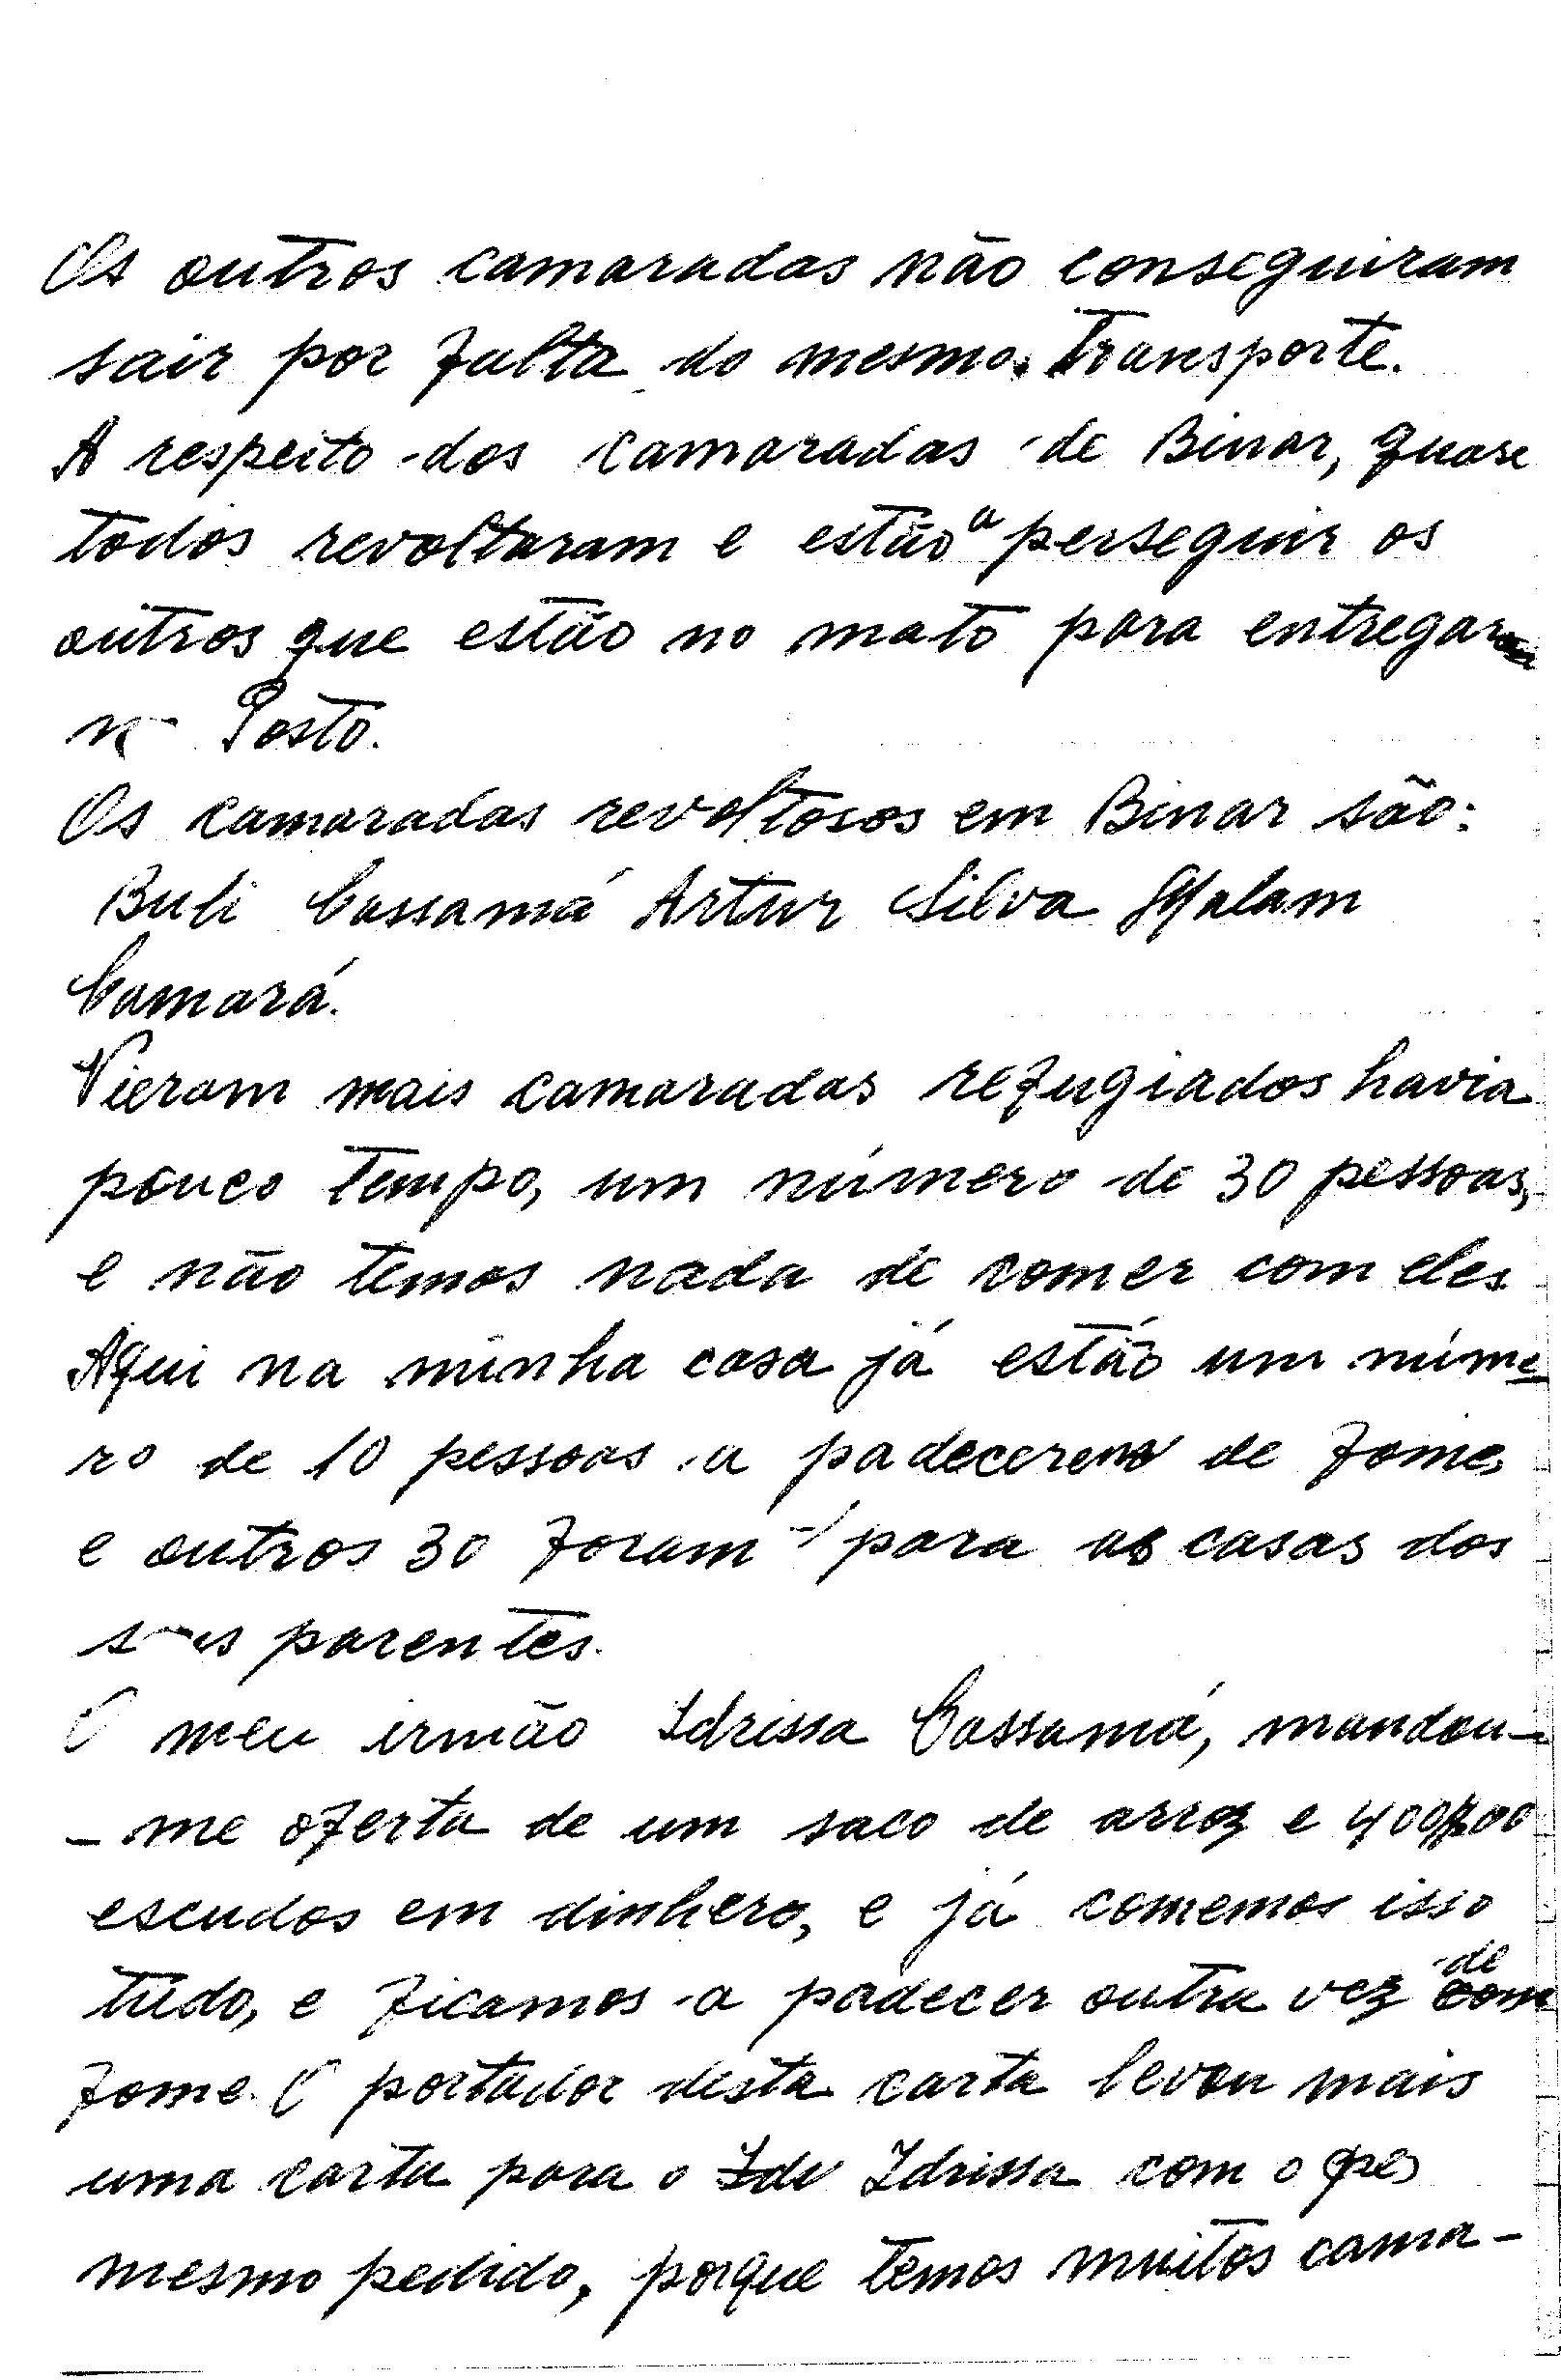 Os outros camaradas não conseguiram
sair por falta do mesmo transporte.
A respeito dos camaradas de Binar, quase
todos revoltaram e estão a perseguir os
outros que estão no mato para entregar
no Posto.
Os camaradas revoltosos em Binar são:
Buli Cassamá Artur Silva Malam
Camará.
Vieram mais camaradas refugiados havia
pouco tempo, um número de 30 pessoas,
e não temos nada de comer com eles
Aqui na minha casa já estão um núme
ro de 10 pessoas a padecerem de fome,
e outros 30 foram para as casas dos
seus parentes.
O meu irmão Idrissa Cassamá, mandou-
-me oferta de um saco de arroz e 400$00
escudos em dinhero, e já comemos isso
tudo, e ficamos a padecer outra vez de
fome. O portador desta carta levou mais
uma carta para o Idrissa com o
mesmo pedido, porque temos muitos cama-